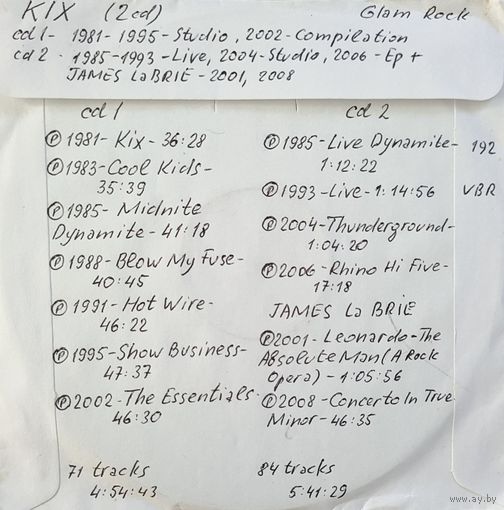 KIX (2cd) Glam Rock
cd1- 1981-1995-Studio, 2002-Compilation
cd2 - 1985-1993-Live, 2004-Studio, 2006-Ep +
JAMES LaBRIE - 2001, 2008
cd1
Ⓟ1981-Kix-36:28
Ⓟ1983-Cool Kids-
35:39
Ⓟ1985-Midnite
Dynamite-41:18
Ⓟ1988-Blow My Fuse-
40:45
Ⓟ1991-Hot Wire-
46:22
Ⓟ1995-Show Business-
47:37
Ⓟ2002-The Essentials-
46:30
71 tracks
4:54:43
cd2
Ⓟ1985-Live Dynamite-
1:12:22
Ⓟ1993-Live-1:14:56
Ⓟ2004-Thunderground-
1:04:20
Ⓟ2006-Rhino Hi Five-
17:18
JAMES La BRIE
Ⓟ2001-Leonardo-The
Absolute Man(A Rock
Opera)-1:05:56
Ⓟ2008-Concerto In True
Minor-46:35
84 tracks
5:41:29
192
VBR
www.ay.by